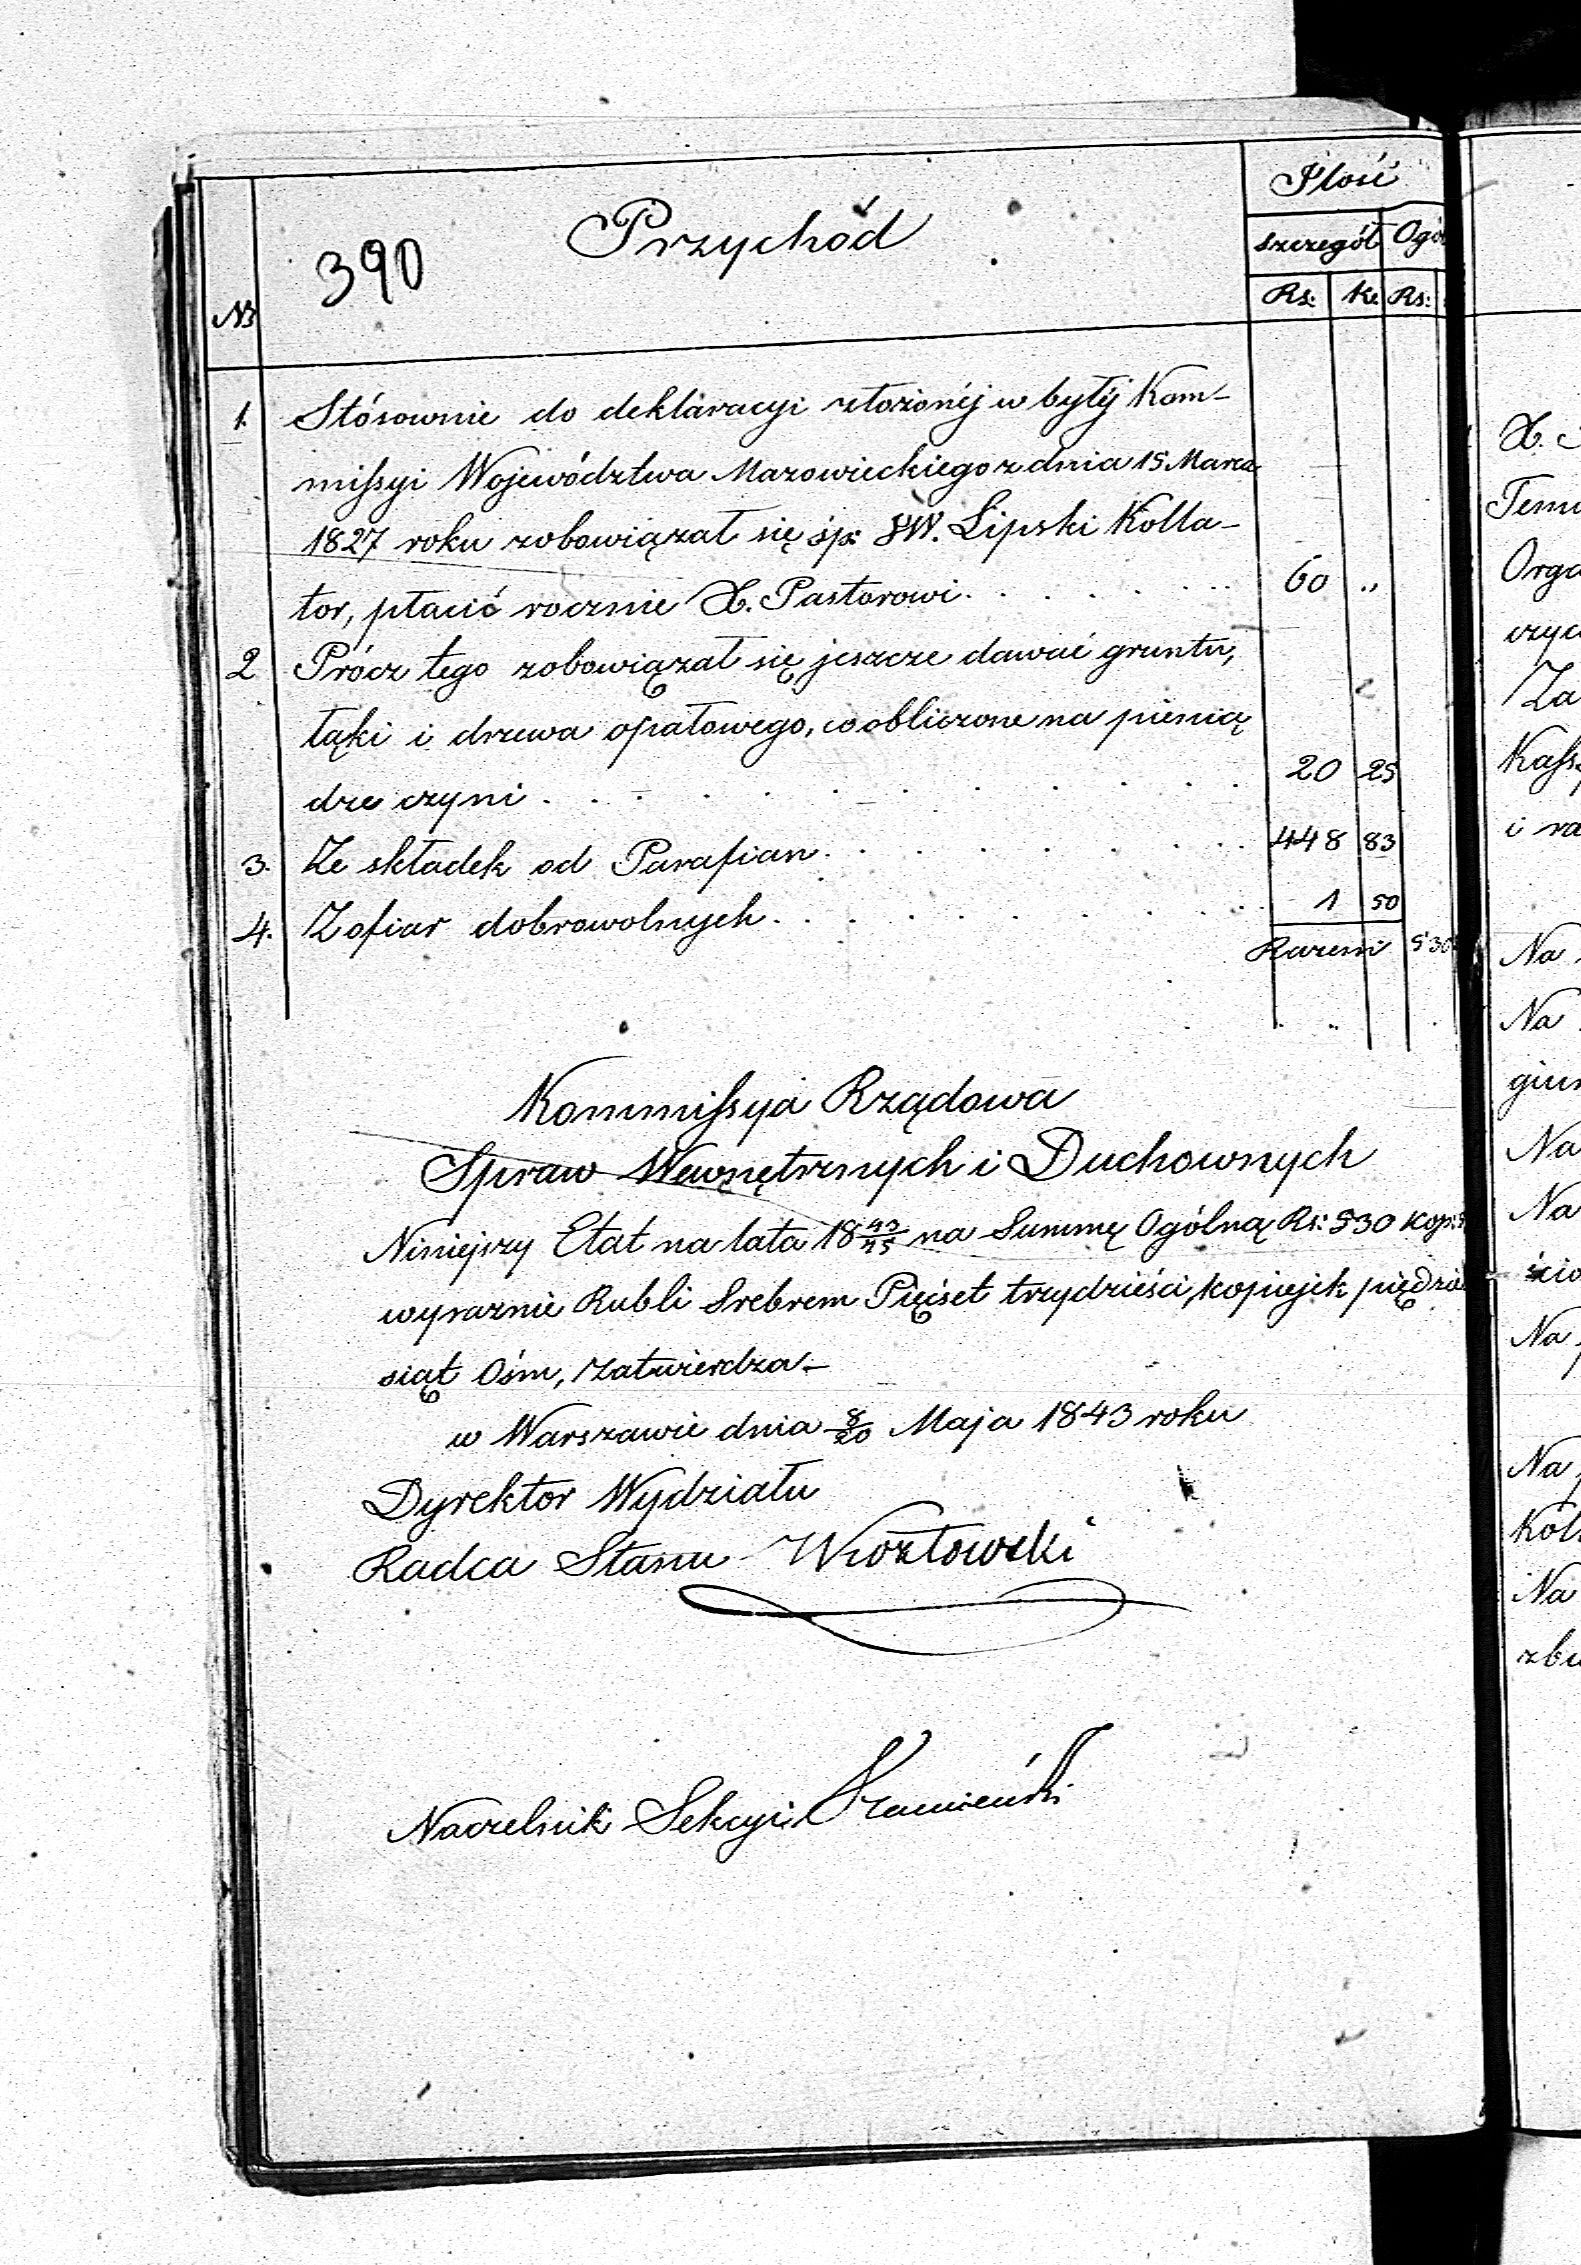 Ilość
Przychód
szczegół Ogó
390
Rs: Ke Rs:
No
1. Stósownie do deklaracyi złożonéj w byłéj Kom-
missyi Województwa Mazowieckiego z dnia 15 Marca
1827 roku zobowiązał się śp: JW. Lipski Kolla-
tor, płacić rocznie X. Pastorowi . . . . . . 60 „
2 Prócz tego zobowiązał się jeszcze dawać gruntu,
łąki i drzewa opałowego, co obliczone na pienią
dze czyni . . . . . . . . . . . 20 25
3. Ze składek od Parafian . . . . . . . . 448 83
4. Z ofiar dobrowolnych . . . . . . . . . 1 50
Razem 530
Kommissya Rządowa
Spraw Wewnętrznych i Duchownych
Niniejszy Etat na lata 18 43/45 na Summę Ogólną Rs: 530 kop: 5
wyraznie Rubli Srebrem Pięćset trzydzieści, kopiejek pięćdzie
siąt Ośm, zatwierdza-
w Warszawie dnia 8/20 Maja 1843 roku
Dyrektor Wydziału
Radca Stanu Kozłowski
Naczelnik Sekcyi
X.
Orga
czyc
Za
Kass
i ra
Na
Na
giu
Na
Na
ścio
Na
Na
Na
zbu